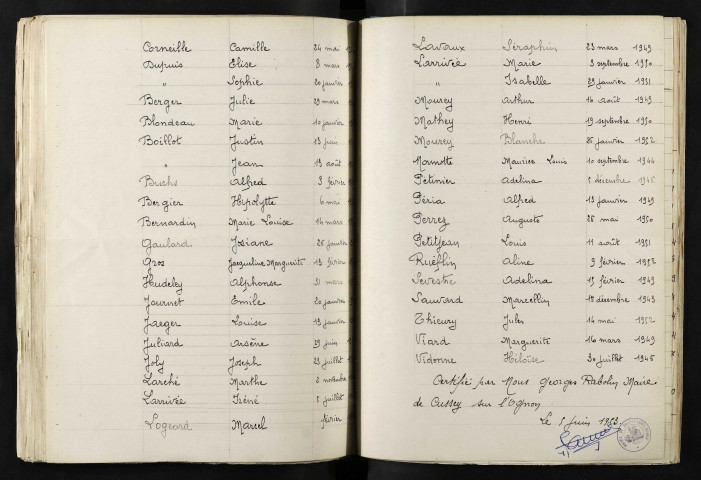 Corneille Camille 24 mai
Dupuis Elise 8 mars
" Sophie 20 janvier
Berger Julie 29 mars
Blondeau Marie 10 janvier
Boillot Justin 13 juin
" Jean 19 août
Buchs Alfred 3 février
Bergier Hipolytte 6 mai
Bernardin Marie Louise 14 mars
Gaulard Josiane 26 janvier
Gros Jacqueline Marguerite 13 février
Hudeley Alphonse 31 mars
Journet Emile 20 janvier
Jaeger Louise 19 janvier
Juliard Arsène 29 juin
Joly Joseph 23 juillet
Larché Marthe 2 novembre
Larrivée Iréné 1 juillet
Logeard Marcel février
Lavaux Séraphin 23 mars 1949
Larrivée Marie 3 septembre 1950
" Isabelle 29 janvier 1951
Mourey Arthur 14 août 1949
Mathey Henri 19 septembre 1950
Mourey Blanche 25 janvier 1952
Mamotte Maurice Louis 10 septembre 1944
Petinier Adelina décembre 1946
Péria Alfred 13 janvier 1949
Perrez Auguste 26 mai 1950
Petitjean Louis 11 août 1951
Rueflin Aline 9 février 1952
Sevestre Adelina 15 février 1949
Sauvard Marcellin 18 décembre 1949
Thieury Jules 14 mai 1952
Viard Marguerite 16 mars 1949
Vidonne Héloïse 30 juillet 1946
Certifié par Nous Georges Rabolin Maire
de Cussey sur l'Ognon
Le 1 juin 1953